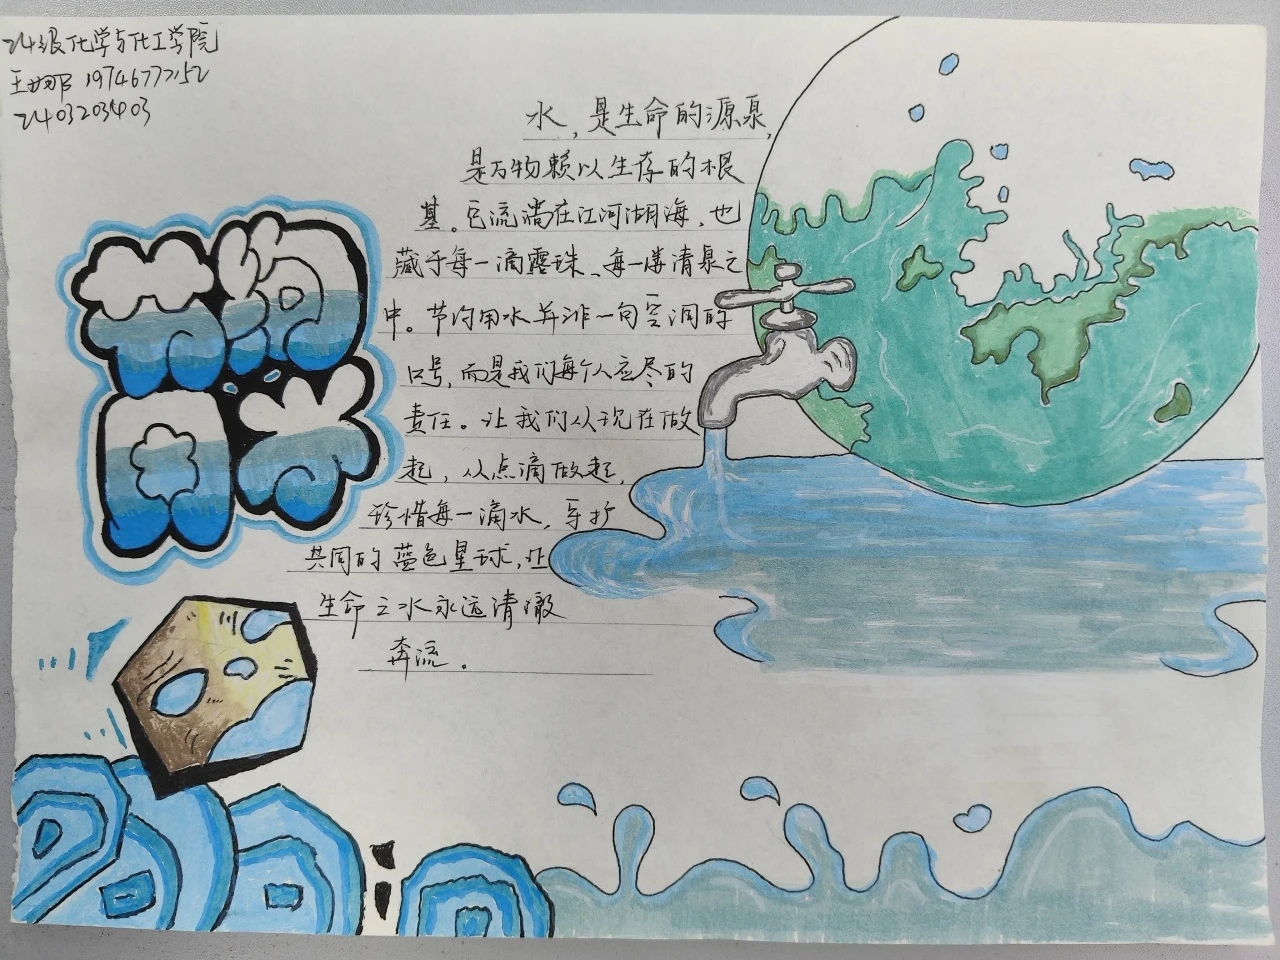 24级化学与化工学院
2403203403
节约
用水
水，是生命的源泉，
是万物赖以生存的根
基。它流淌在江河湖海，也
藏于每一滴露珠、每一缕清泉之
中。节约用水并非一句空洞的
口号，而是我们每个人应尽的
责任。让我们从现在做
起，从点滴做起，
珍惜每一滴水，守护
共同的蓝色星球，让
生命之水永远清澈
奔流。